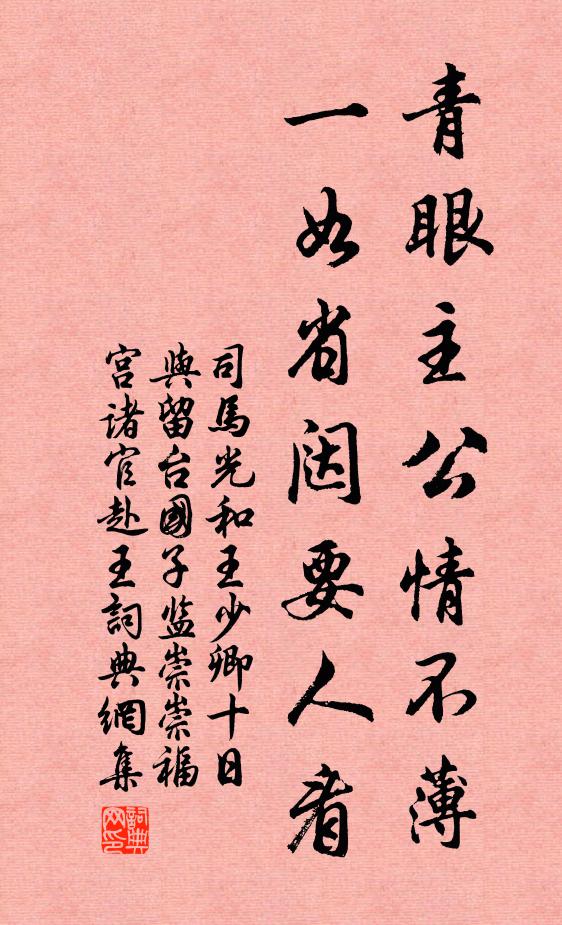 青眼主公情不薄
一如省闼要人看
司馬光和王少卿十日
與留台國子监崇崇福
宫诸官赴王詞典網集
詞典网印